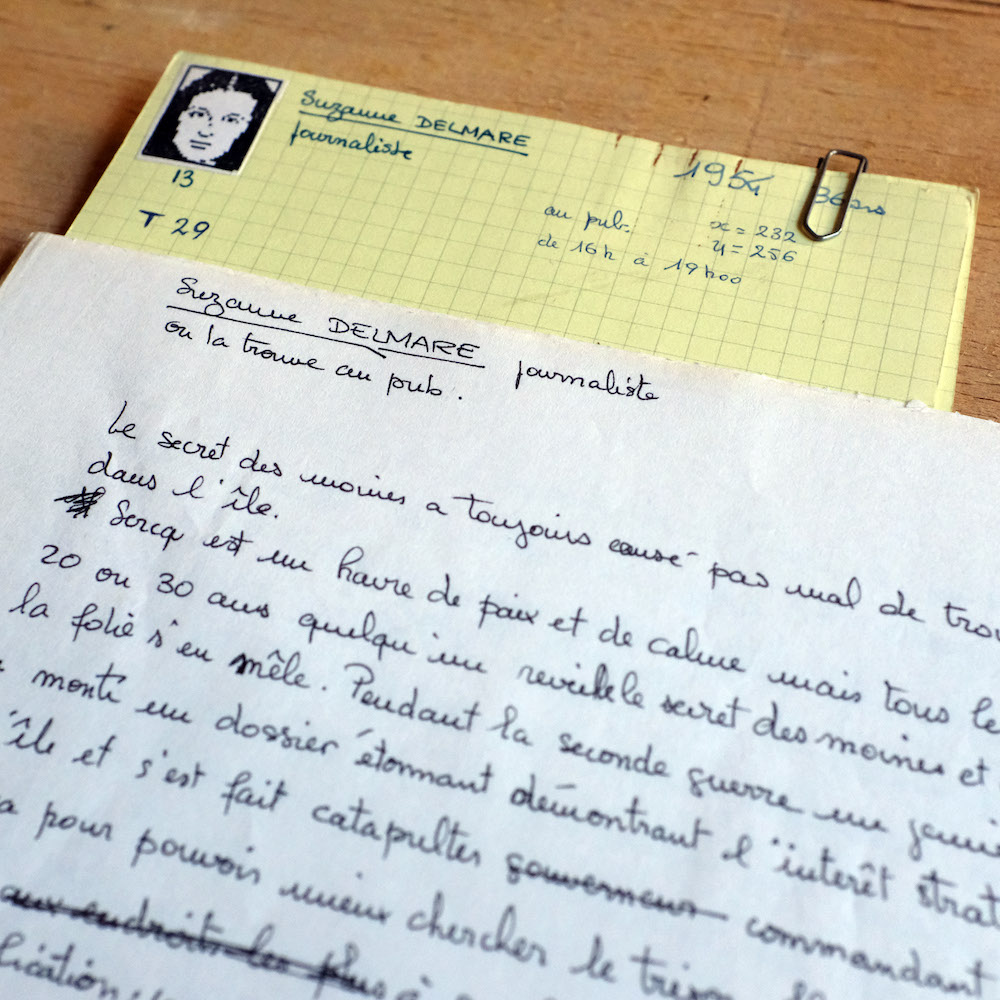 Suzanne DELMARE
journaliste
1954 36 ans
13
T 29
au pub. x = 232
y = 256
de 16h à 19h00
Suzanne DELMARE journaliste
on la trouve au pub.
Le secret des moines a toujours causé pas mal de
dans l'île.
Sercq est un havre de paix et de calme mais tous le
20 ou 30 ans quelqu'un reveille le secret des moines et
la folie s'en mêle. Pendant la seconde guerre un
monté un dossier étonnant démontrant l'interêt strat
île et s'est fait catapulter gouverneur commandant
pour pouvoir mieux chercher le
aux endroits les plus à